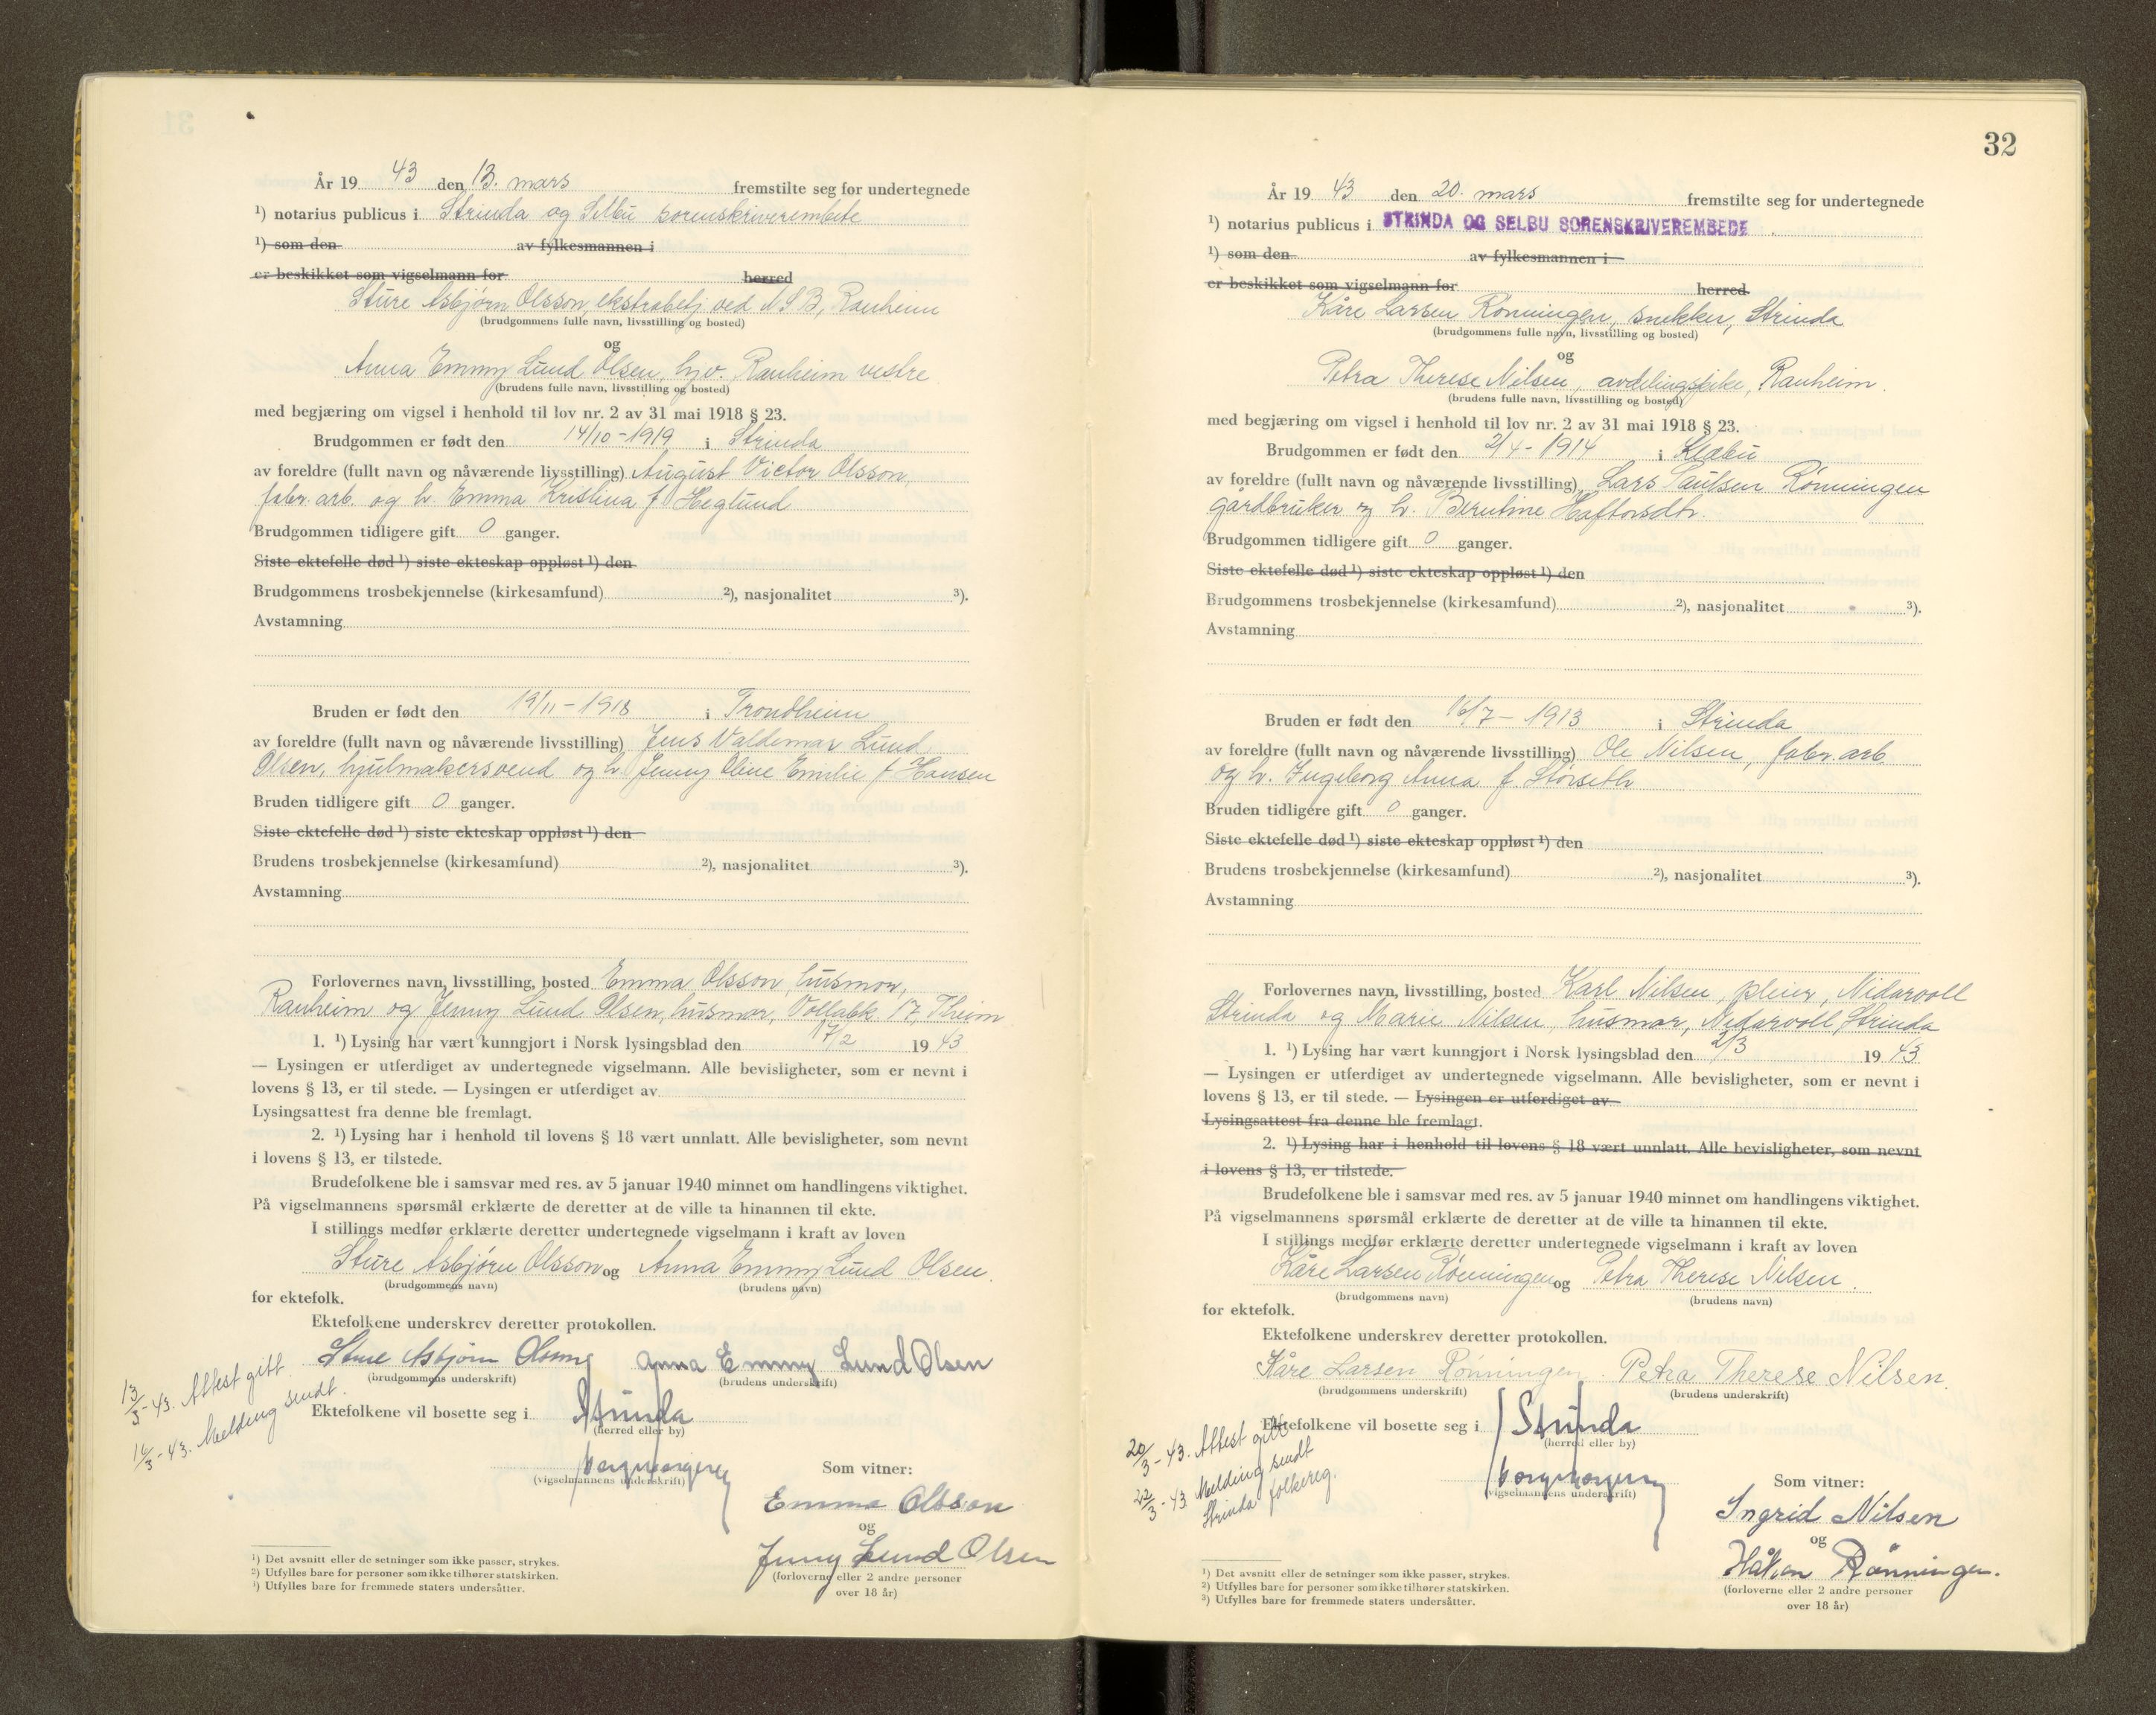 År 19 43 den 13. mars fremstilte seg for undertegnede
¹) notarius publicus i Strinda og Selbu sorenskriverembete
¹) som den av fylkesmannen i
er beskikket som vigselmann for herred
Sture Asbjørn Olsson, ekstrabetj. ved N S B, Ranheim
(brudgommens fulle navn, livsstilling og bosted)
og
Anna Emmy Lund Olsen, hjv. Ranheim vestre
(brudens fulle navn, livsstilling og bosted)
med begjæring om vigsel i henhold til lov nr. 2 av 31 mai 1918 § 23.
Brudgommen er født den 14/10 - 1919 i Strinda
av foreldre (fullt navn og nåværende livsstilling) August Victor Olsson,
fabr. arb. og h. Emma Kristina f. Heglund
Brudgommen tidligere gift 0 ganger.
Siste ektefelle død ¹) siste ekteskap oppløst ¹) den
Brudgommens trosbekjennelse (kirkesamfund) ²), nasjonalitet ³).
Avstamning
Bruden er født den 19/11 - 1918 i Trondheim
av foreldre (fullt navn og nåværende livsstilling) Jens Valdemar Lund
Olsen, hjulmakersvend og h. Jenny Oline Emilie f. Hansen
Bruden tidligere gift 0 ganger.
Siste ektefelle død ¹) siste ekteskap oppløst ¹) den
Brudens trosbekjennelse (kirkesamfund) ²), nasjonalitet ³).
Avstamning
Forlovernes navn, livsstilling, bosted Emma Olsson, husmor,
Ranheim og Jenny Lund Olsen, husmor, Vollabk 17, Theim
1. ¹) Lysing har vært kunngjort i Norsk lysingsblad den 17/2 19 43
— Lysingen er utferdiget av undertegnede vigselmann. Alle bevisligheter, som er nevnt i
lovens § 13, er til stede. — Lysingen er utferdiget av
Lysingsattest fra denne ble fremlagt.
2. ¹) Lysing har i henhold til lovens § 18 vært unnlatt. Alle bevisligheter, som nevnt
i lovens § 13, er tilstede.
Brudefolkene ble i samsvar med res. av 5 januar 1940 minnet om handlingens viktighet.
På vigselmannens spørsmål erklærte de deretter at de ville ta hinannen til ekte.
I stillings medfør erklærte deretter undertegnede vigselmann i kraft av loven
Sture Asbjørn Olsson og Anna Emmy Lund Olsen.
(brudgommens navn) (brudens navn)
for ektefolk.
Ektefolkene underskrev deretter protokollen.
Sture Asbjørn Olsson Anna Emmy Lund Olsen
(brudgommens underskrift) (brudens underskrift)
13/3 - 43. Attest gitt.
16/3 - 43. Melding sendt.
Ektefolkene vil bosette seg i Strinda
(herred eller by)
(vigselmannens underskrift)
Som vitner:
Emma Olsson
og
Jenny Lund Olsen
(forloverne eller 2 andre personer
over 18 år)
¹) Det avsnitt eller de setninger som ikke passer, strykes.
²) Utfylles bare for personer som ikke tilhører statskirken.
³) Utfylles bare for fremmede staters undersåtter.
32
År 19 43 den 20. mars fremstilte seg for undertegnede
¹) notarius publicus i STRINDA OG SELBU SORENSKRIVEREMBEDE
¹) som den av fylkesmannen i
er beskikket som vigselmann for herred.
Kåre Larsen Rønningen, snekker, Strinda
(brudgommens fulle navn, livsstilling og bosted)
og
Petra Therese Nilsen, avdelingspike, Ranheim.
(brudens fulle navn, livsstilling og bosted)
med begjæring om vigsel i henhold til lov nr. 2 av 31 mai 1918 § 23.
Brudgommen er født den 2/4 - 1914 i Klæbu
av foreldre (fullt navn og nåværende livsstilling) Lars Paulsen Rønningen
gårdbruker og h. Berntine Haftorsdtr.
Brudgommen tidligere gift 0 ganger.
Siste ektefelle død ¹) siste ekteskap oppløst ¹) den
Brudgommens trosbekjennelse (kirkesamfund) ²), nasjonalitet ³).
Avstamning
Bruden er født den 16/7 - 1913 i Strinda
av foreldre (fullt navn og nåværende livsstilling) Ole Nilsen, fabr. arb.
og h. Ingeborg Anna f. Storseth
Bruden tidligere gift 0 ganger.
Siste ektefelle død ¹) siste ekteskap oppløst ¹) den
Brudens trosbekjennelse (kirkesamfund) ²), nasjonalitet ³).
Avstamning
Forlovernes navn, livsstilling, bosted Karl Nilsen, pleier, Nidarvoll
Strinda og Marie Nilsen, husmor, Nidarvoll, Strinda
1. ¹) Lysing har vært kunngjort i Norsk lysingsblad den 2/3 19 43
— Lysingen er utferdiget av undertegnede vigselmann. Alle bevisligheter, som er nevnt i
lovens § 13, er til stede. — Lysingen er utferdiget av
Lysingsattest fra denne ble fremlagt.
2. ¹) Lysing har i henhold til lovens § 18 vært unnlatt. Alle bevisligheter, som nevnt
i lovens § 13, er tilstede.
Brudefolkene ble i samsvar med res. av 5 januar 1940 minnet om handlingens viktighet.
På vigselmannens spørsmål erklærte de deretter at de ville ta hinannen til ekte.
I stillings medfør erklærte deretter undertegnede vigselmann i kraft av loven
Kåre Larsen Rønningen og Petra Therese Nilsen.
(brudgommens navn) (brudens navn)
for ektefolk.
Ektefolkene underskrev deretter protokollen.
Kåre Larsen Rønningen. Petra Therese Nilsen.
(brudgommens underskrift) (brudens underskrift)
Ektefolkene vil bosette seg i Strinda
(herred eller by)
20/3 - 43. Attest gitt
22/3 - 43 Melding sendt
Strinda folkereg.
(vigselmannens underskrift)
Som vitner:
Ingrid Nilsen
og
Håkon Rønningen.
(forloverne eller 2 andre personer
over 18 år)
¹) Det avsnitt eller de setninger som ikke passer, strykes.
²) Utfylles bare for personer som ikke tilhører statskirken.
³) Utfylles bare for fremmede staters undersåtter.